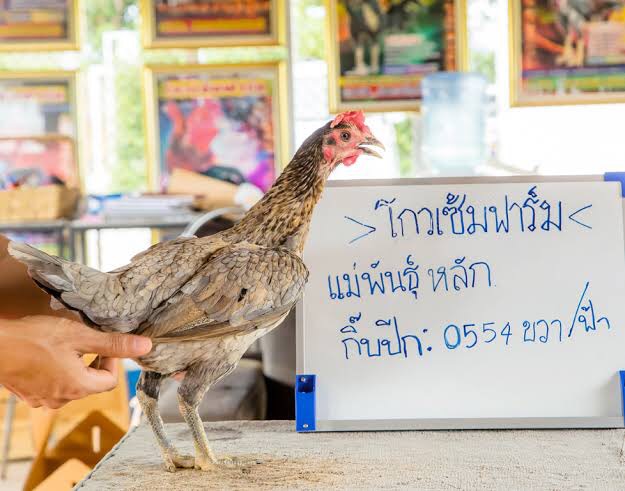 >โกวเซ้มฟาร์ม<
แม่พันธุ์ หลัก
กิ๊บปีก: 0554 ขวา/ฟ้า